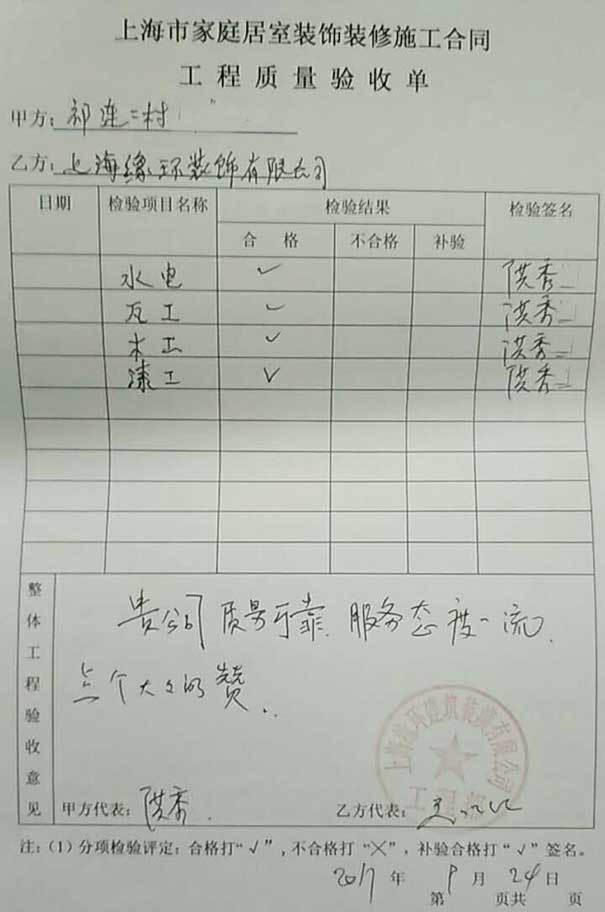 上海市家庭居室装饰装修施工合同
工程质量验收单
甲方：祁连二村
乙方：上海缘环装饰有限公司
日期 检验项目名称 检验结果 检验签名
合格 不合格 补验
水电 ✓ 洪秀
瓦工 ✓ 洪秀
木工 ✓ 洪秀
漆工 ✓ 洪秀
整体工程验收意见
贵公司质量可靠、服务态度一流、
点个大大的赞.
甲方代表：洪秀
乙方代表：
注：(1)分项检验评定：合格打“√”,不合格打“╳”,补验合格打“√”签名。
2017年9月24日
第 页共 页